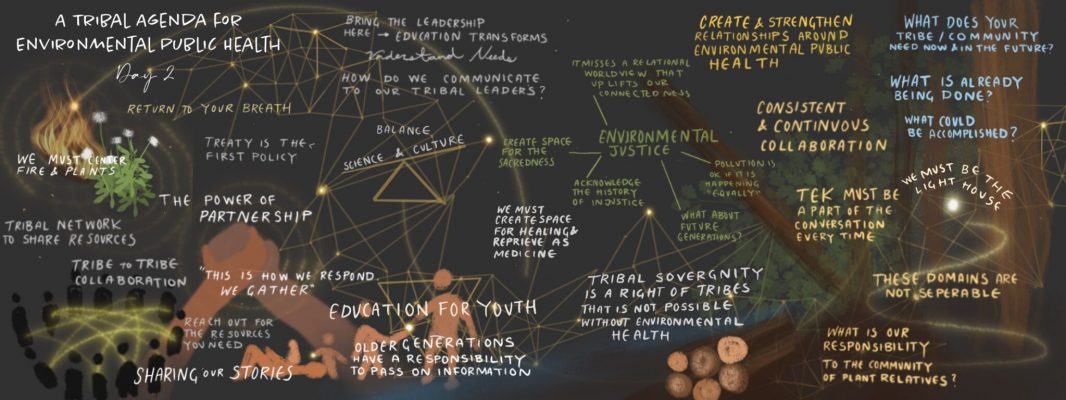 A TRIBAL AGENDA FOR
ENVIRONMENTAL PUBLIC HEALTH
Day 2
RETURN TO YOUR BREATH
WE MUST CENTER
FIRE & PLANTS
TREATY IS THE
FIRST POLICY
THE POWER OF
PARTNERSHIP
TRIBAL NETWORK
TO SHARE RESOURCES
TRIBE TO TRIBE
COLLABORATION
"THIS IS HOW WE RESPOND
WE GATHER"
REACH OUT FOR
THE RESOURCES
YOU NEED
SHARING OUR STORIES
BRING THE LEADERSHIP
HERE → EDUCATION TRANSFORMS
Understand Needs
HOW DO WE COMMUNICATE
TO OUR TRIBAL LEADERS?
BALANCE
SCIENCE & CULTURE
EDUCATION FOR YOUTH
OLDER GENERATIONS
HAVE A RESPONSIBILITY
TO PASS ON INFORMATION
IT MISSES A RELATIONAL
WORLDVIEW THAT
UPLIFTS OUR
CONNECTEDNESS
CREATE SPACE
FOR THE
SACREDNESS
ENVIRONMENTAL
JUSTICE
ACKNOWLEDGE
THE HISTORY
OF INJUSTICE
POLLUTION IS
OK IF IT IS
HAPPENING
"EQUALLY"
WHAT ABOUT
FUTURE
GENERATIONS?
WE MUST
CREATE SPACE
FOR HEALING &
REPRIEVE AS
MEDICINE
TRIBAL SOVERGNITY
IS A RIGHT OF TRIBES
THAT IS NOT POSSIBLE
WITHOUT ENVIRONMENTAL
HEALTH
CREATE & STRENGTHEN
RELATIONSHIPS AROUND
ENVIRONMENTAL PUBLIC
HEALTH
CONSISTENT
& CONTINVOUS
COLLABORATION
TEK MUST BE
A PART OF THE
CONVERSATION
EVERY TIME
WHAT DOES YOUR
TRIBE / COMMUNITY
NEED NOW & IN THE FUTURE?
WHAT IS ALREADY
BEING DONE?
WHAT COULD
BE ACCOMPLISHED?
WE MUST BE THE
LIGHT HOUSE
THESE DOMAINS ARE
NOT SEPERABLE
WHAT IS OUR
RESPONSIBILITY
TO THE COMMUNITY
OF PLANT RELATIVES?